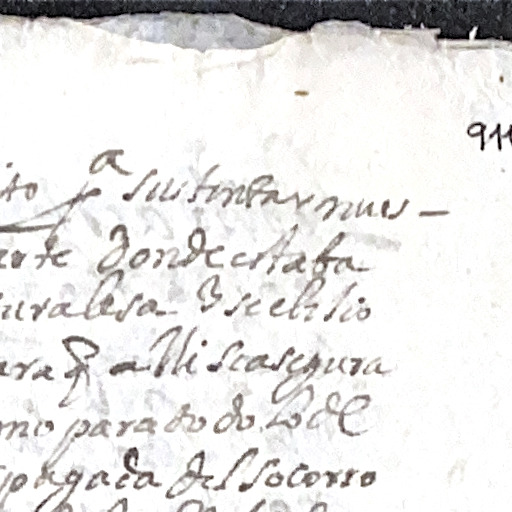 911
ito pa sustentar nues-
arte donde estaba
turalesa y se eli
ara q alli se asegura
mo para todo lo de
pagada del socorro